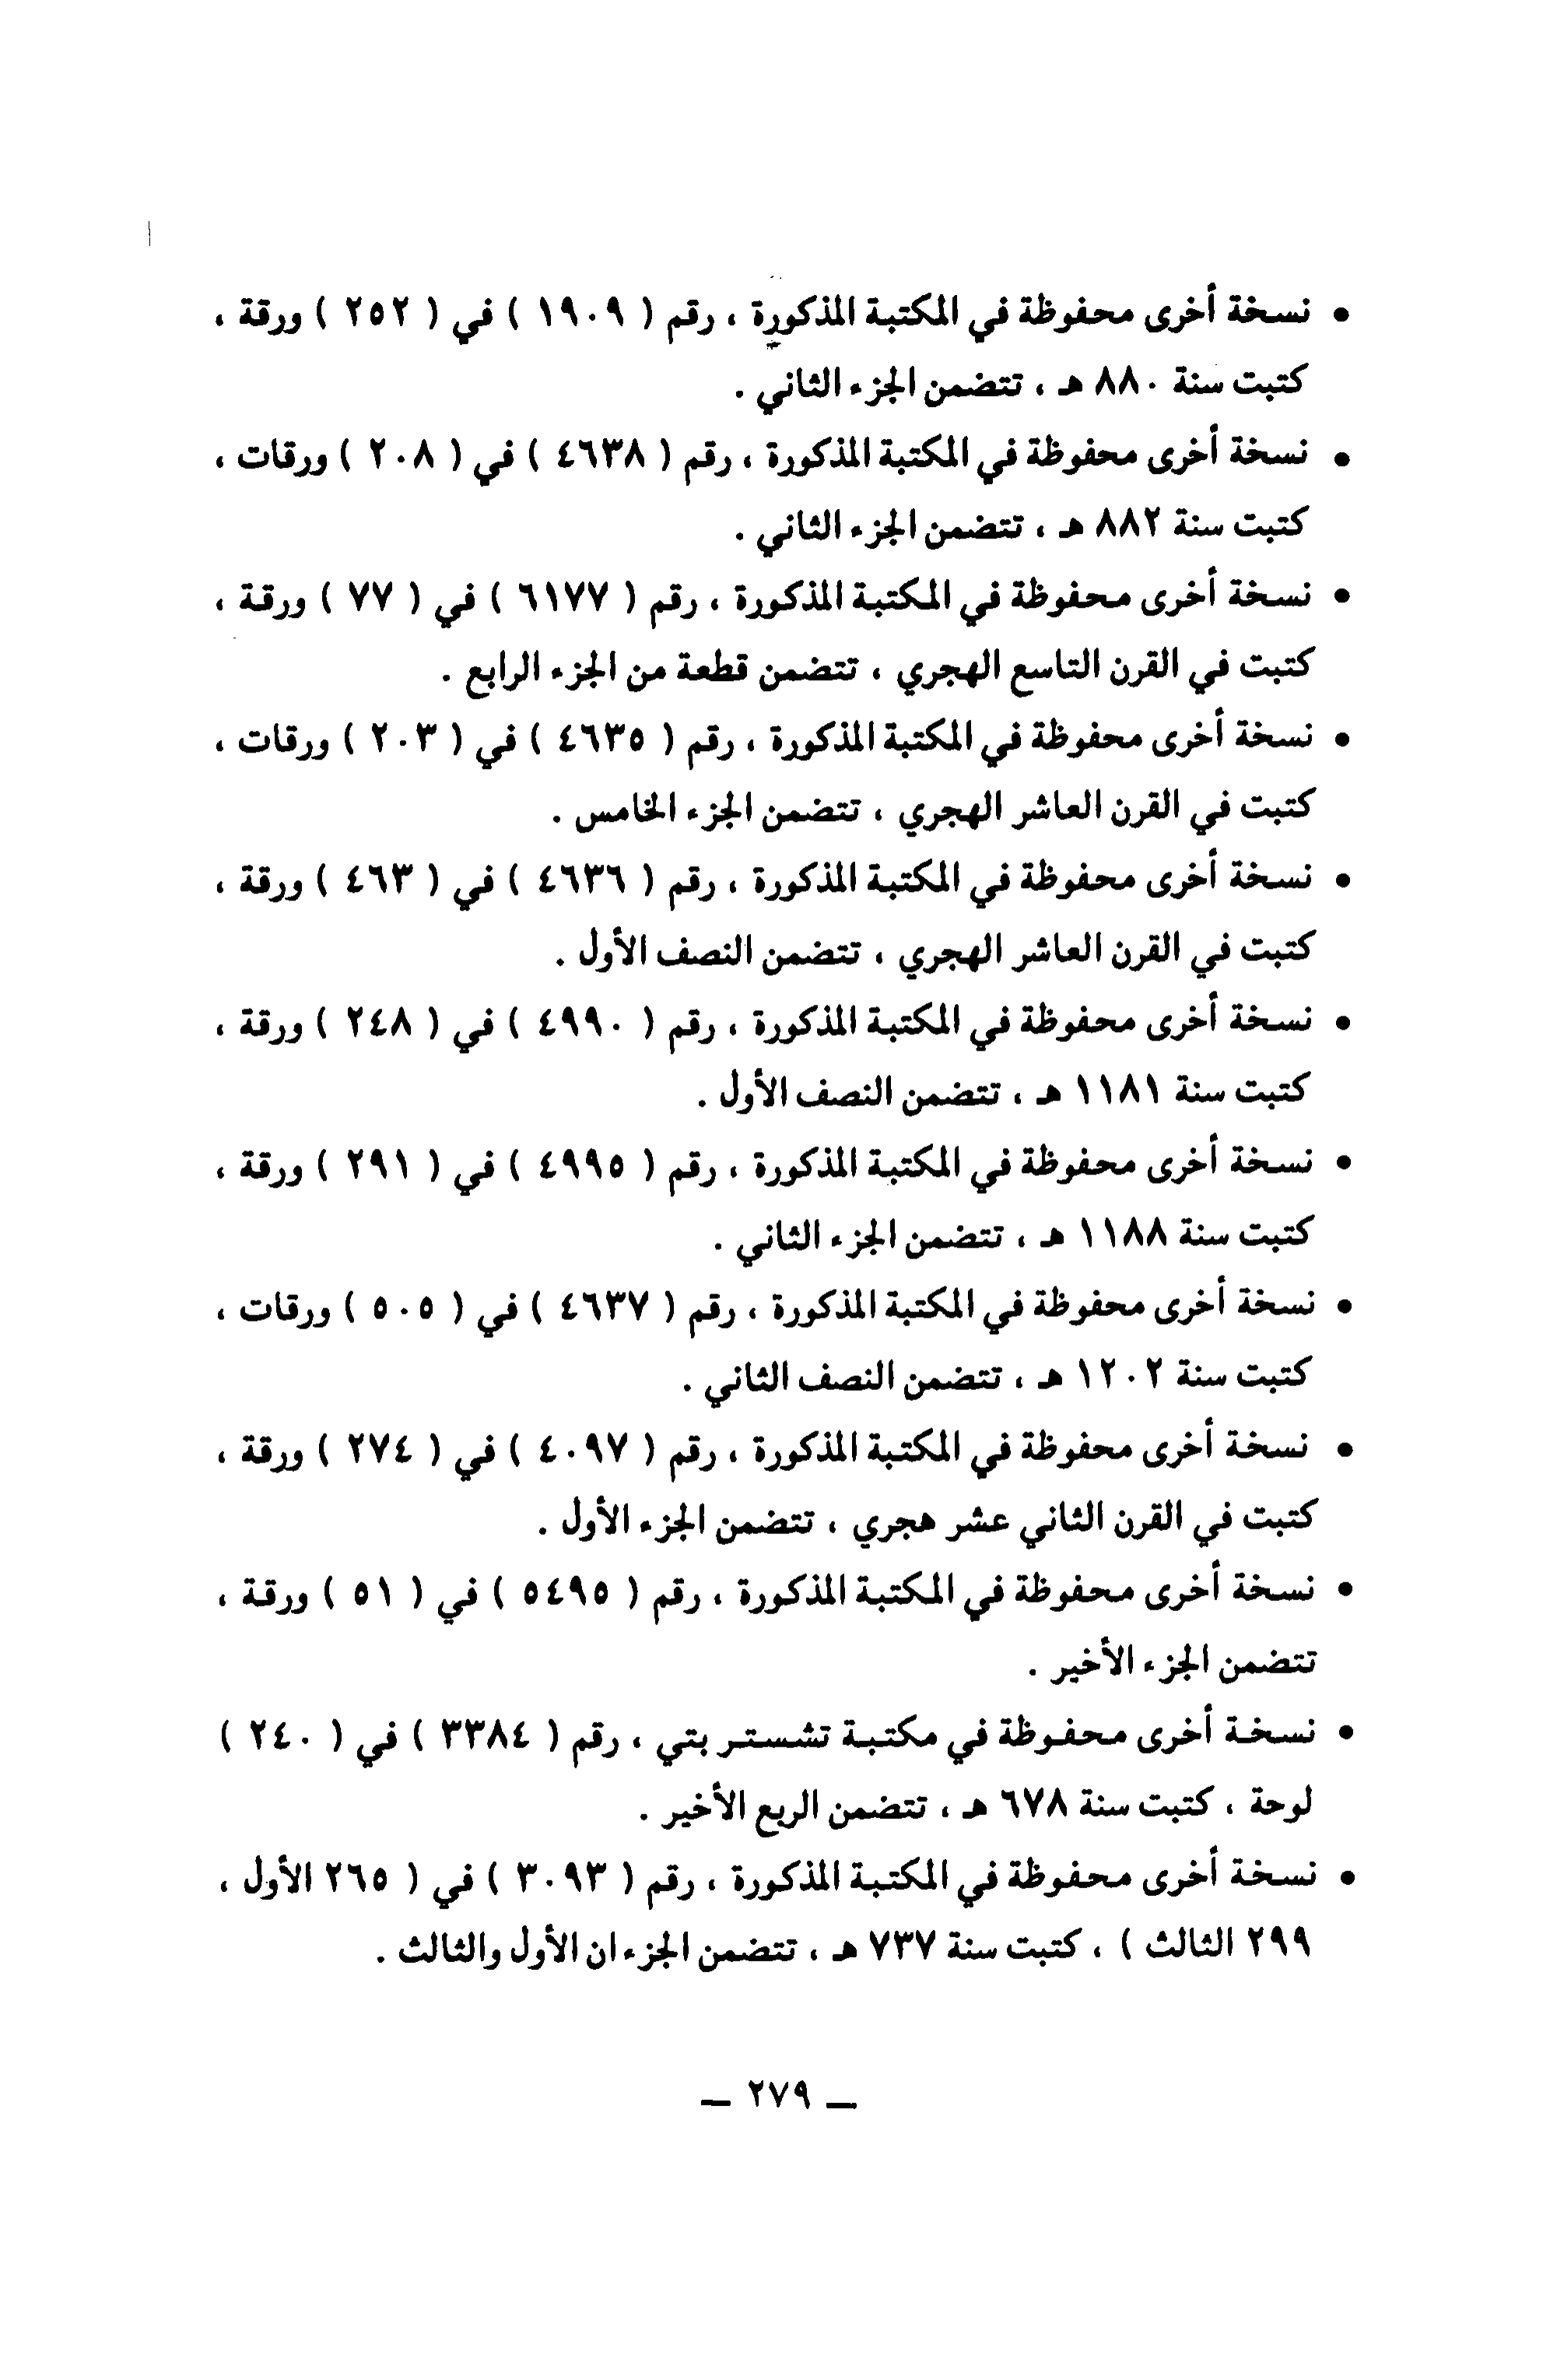 • نسخة أخرى محفوظة في المكتبة المذكورة ، رقم ( ١٩٠٩ ) في ( ٢٥٢ ) ورقة ،
كتبت سنة ٨٨٠ هـ ، تتضمن الجزء الثاني .
• نسخة أخرى محفوظة في المكتبة المذكورة ، رقم ( ٤٦٣٨ ) في ( ٢٠٨ ) ورقات ،
كتبت سنة ٨٨٢ هـ ، تتضمن الجزء الثاني .
• نسخة أخرى محفوظة في المكتبة المذكورة ، رقم ( ٦١٧٧ ) في ( ٧٧ ) ورقة ،
كتبت في القرن التاسع الهجري ، تتضمن قطعة من الجزء الرابع .
• نسخة أخرى محفوظة في المكتبة المذكورة ، رقم ( ٤٦٣٥ ) في ( ٢٠٣ ) ورقات ،
كتبت في القرن العاشر الهجري ، تتضمن الجزء الخامس .
• نسخة أخرى محفوظة في المكتبة المذكورة ، رقم ( ٤٦٣٦ ) في ( ٤٦٣ ) ورقة ،
كتبت في القرن العاشر الهجري ، تتضمن النصف الأول .
• نسخة أخرى محفوظة في المكتبة المذكورة ، رقم ( ٤٩٩٠ ) في ( ٢٤٨ ) ورقة ،
كتبت سنة ١١٨١ هـ ، تتضمن النصف الأول .
• نسخة أخرى محفوظة في المكتبة المذكورة ، رقم ( ٤٩٩٥ ) في ( ٢٩١ ) ورقة ،
كتبت سنة ١١٨٨ هـ ، تتضمن الجزء الثاني .
• نسخة أخرى محفوظة في المكتبة المذكورة ، رقم ( ٤٦٣٧ ) في ( ٥٠٥ ) ورقات ،
كتبت سنة ١٢٠٢ هـ ، تتضمن النصف الثاني .
• نسخة أخرى محفوظة في المكتبة المذكورة ، رقم ( ٤٠٩٧ ) في ( ٢٧٤ ) ورقة ،
كتبت في القرن الثاني عشر هجري ، تتضمن الجزء الأول .
• نسخة أخرى محفوظة في المكتبة المذكورة ، رقم ( ٥٤٩٥ ) في ( ٥١ ) ورقة ،
تتضمن الجزء الأخير .
• نسخة أخرى محفوظة في مكتبة تشستر بتي ، رقم ( ٣٣٨٤ ) في ( ٢٤٠ )
لوحة ، كتبت سنة ٦٧٨ هـ ، تتضمن الربع الأخير .
• نسخة أخرى محفوظة في المكتبة المذكورة ، رقم ( ٣٠٩٣ ) في ( ٢٦٥ الأول ،
٢٩٩ الثالث ) ، كتبت سنة ٧٣٧ هـ ، تتضمن الجزءان الأول والثالث .
ــ ٢٧٩ ــ